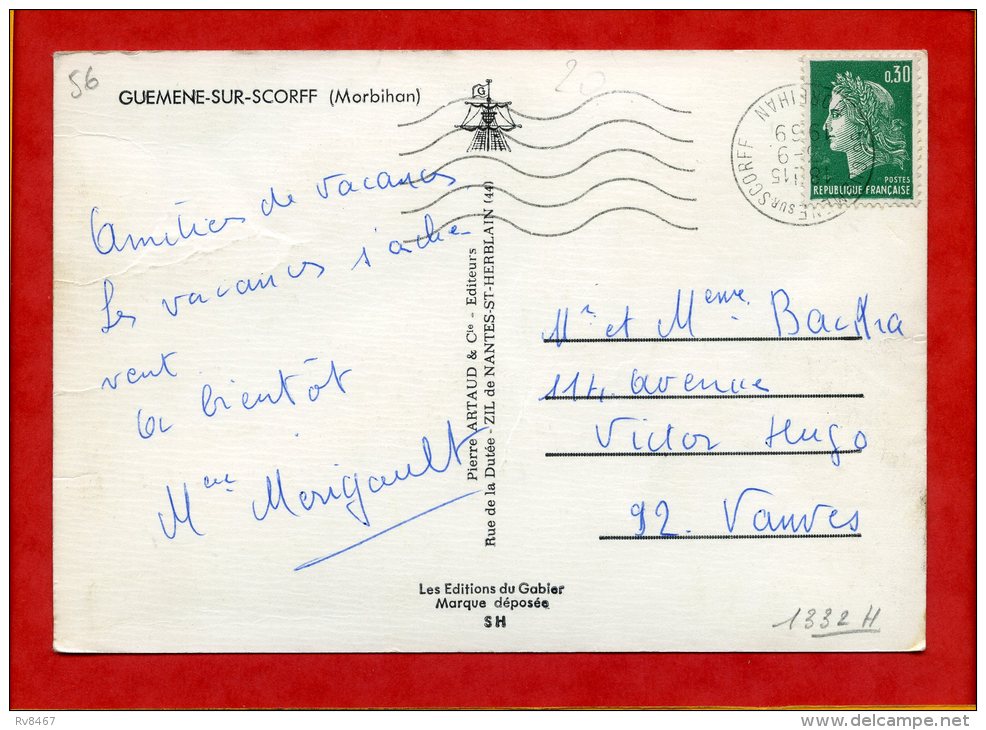 56
GUEMENE-SUR-SCORFF (Morbihan)
20
0,30
POSTES
REPUBLIQUE FRANÇAISE
SUR SCORFF
Amitiés de vacances
Les vacances s'achè-
vent
A bientôt
Mme Merigault
Pierre ARTAUD & Cie - Editeurs
Rue de la Dutée - ZIL de NANTES-ST-HERBLAIN (44)
Mr et Meme Bachra
114, avenue
Victor Hugo
92. Vanves
Les Editions du Gabier
Marque déposée
SH
1332 H
Rv8467
delcampe.net